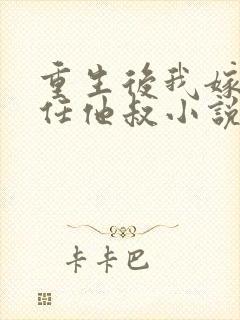 重生後我嫁
任他叔小說
卡卡巴